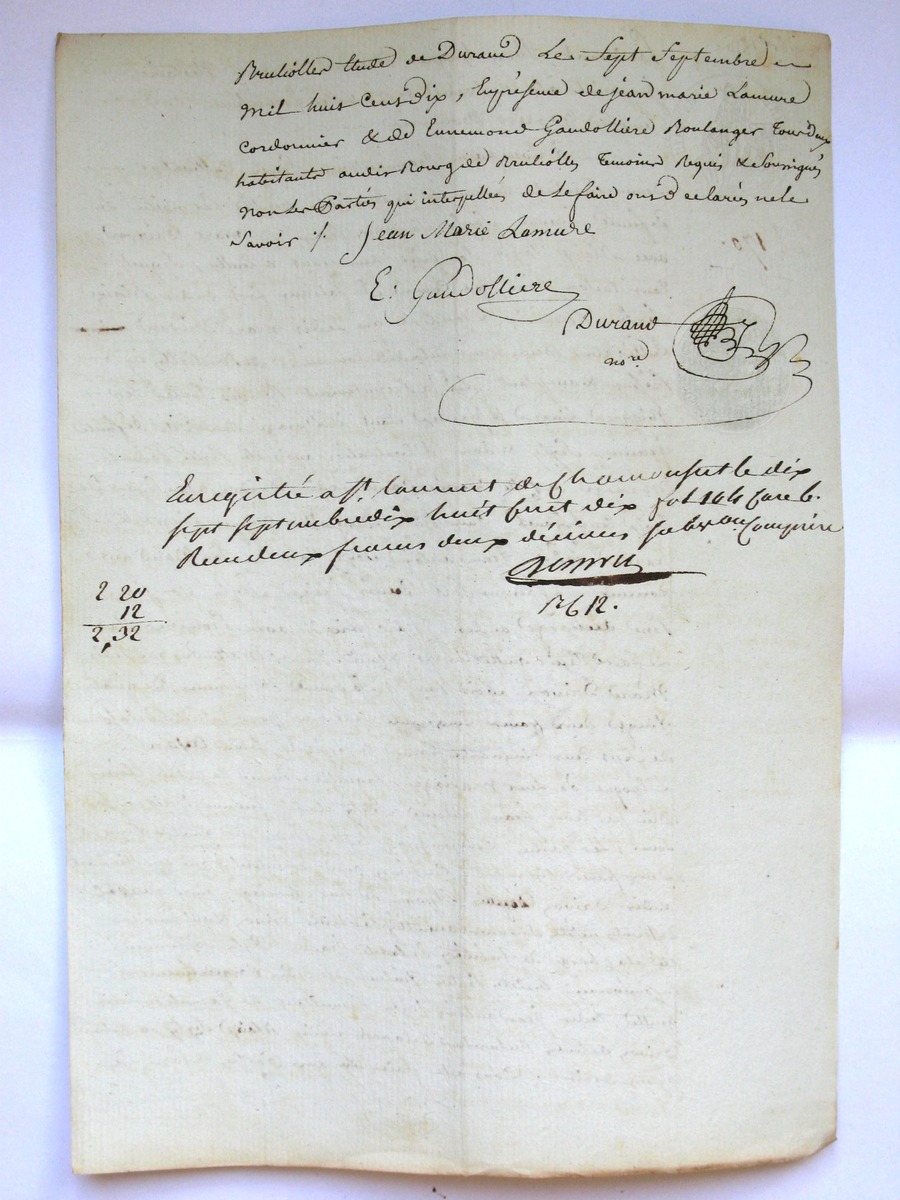 Brullolles Etude de Durand Le Sept Septembre
mil huit cent dix, En présence de jean marie Lamure
cordonnier & de Ennemond Gaudolliere Boulanger tous deux
habitants audit Bourg de Brullolles temoins Requis & soussignés
non Les Parties qui interpellées de Le faire ont déclarés ne le
Savoir /. Jean Marie Lamure
E. Gaudolliere
Durand
nore
Enregistré a St. Laurent de Chamousset le dix
sept septembre dix huit cent dix fol 144 case 6.
Recu deux francs deux décimes subvon Comprise
R 6 12.
2 20
12
2,32